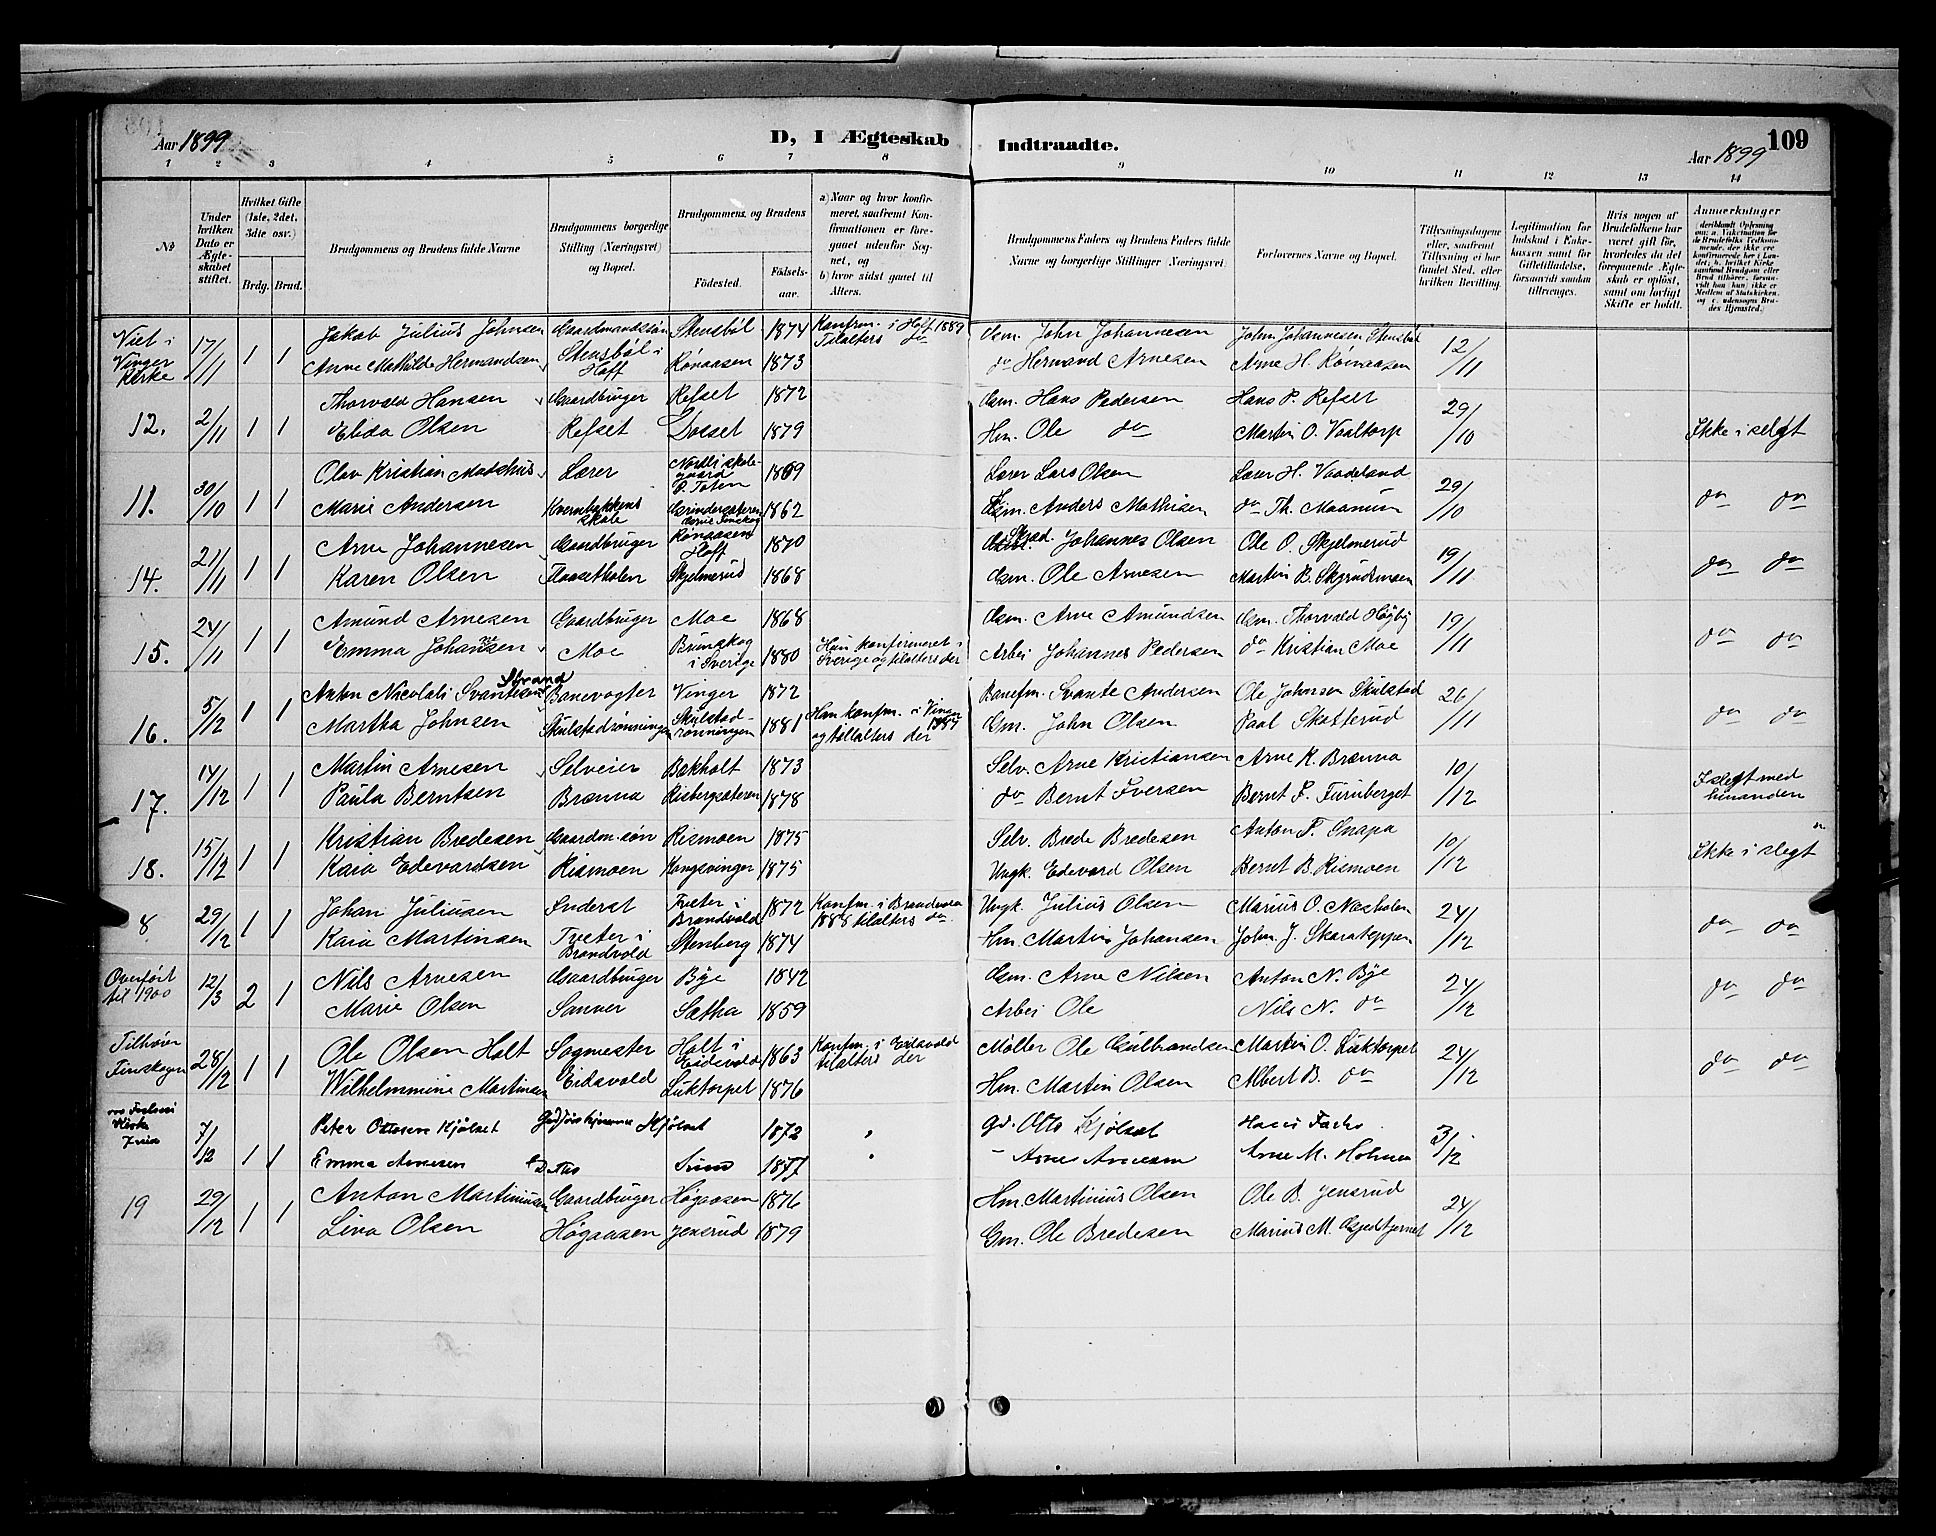 Aar 1899
D, I Ægteskab
Indtraadte.
Aar 1899
109
1 2 3 4 5 6 7 8 9 10 11 12 13 14
№
Under hvilken Dato er Ægteskabet stiftet.
Hvilket Gifte (1ste, 2det, 3die osv.)
Brdg. Brud.
Brudgommens og Brudens fulde Navne
Brudgommens borgerlige Stilling (Næringsvei) og Bopæl.
Brudgommens og Brudens
Födested.
Födselsaar.
a) Naar og hvor konfirmeret, saafremt Konfirmationen er foregaaet udenfor Sognet, og
b) hvor sidst gaaet til Alters.
Brudgommens Faders og Brudens Faders fulde Navne og borgerlige Stillinger (Næringsvei).
Forlovernes Navne og Bopæl.
Tillysningsdagene eller, saafremt Tillysning ei har fundet Sted, efter hvilken Bevilling.
Legitimation for Indskud i Enkekassen samt for Giftetilladelse, forsaavidt saadan tiltrænges.
Hvis nogen af Brudefolkene har været gift før, hvorledes da det foregaaende Ægteskab er opløst, samt om lovligt Skifte er holdt.
Anmærkninger
Viet i Vinger Kirke 17/11 1 1 Jakob Julius Johnsen Gaardmandssön Stensböl 1874 Konfrm. i Hoff 1889 Gsm. John Johannesen John Johannesen Stensböl 12/11
Anne Mathilde Hermandsen Stensböl i Hoff Rönaasen 1873 Tilalters do do Hermand Arnesen Arne H. Rönaasen
12. 2/11 1 1 Thorvald Hansen Gaardbruger Refset 1872 Gsm. Hans Pedersen Hans P. Refset 29/10 Ikke i selgt
Elida Olsen Refset Dosset 1879 Hm. Ole do Martin O. Vaaltorp
11. 30/10 1 1 Olav Kristian Madshus Lærer Nordli skolegaard Ø. Toten 1869 Lærer Lars Olsen Lærer H. Vaadeland 29/10 do do
Marie Andersen Kvernbækkens skole Grindersæteren 1862 Anders Mathisen do Th. Moanum
14. 21/11 1 1 Arne Johannesen Gaardbruger Rönaasen Hoff 1870 Johannes Olsen Ole O. Skjelmerud 19/11 do do
Karen Olsen Flaasetholen Skjelmerud 1868 Gsm. Ole Arnesen Martin B. Skyrudsmoen
15. 24/11 1 1 Amund Arnesen Gaardbruger Moe 1868 Gsm. Arne Amundsen Gsm. Thorvald Högby 19/11 do do
Emma Johannesen Moe Brunskog i Sverige 1880 Hun konfirmeret i Sverige og tilalters der Arbei Johannes Pedersen do Kristian Moe
16. 5/12 1 1 Anton Nicolai Svantesen Strand Banevogter Vinger 1872 Banefm. Svante Andersen Ole Johnsen Skulstad 26/11 do do
Martha Johnsen Skulstadrönningen Skulstadrönningen 1881 Han konfm. i Vinger 1887 og tilalters der Gm. John Olsen Paal Skotterud
17. 14/12 1 1 Martin Arnesen Selveier Bakholt 1873 Selv. Arne Kristiansen Arne K. Brænna 10/12 I slegt med hinanden
Paula Berntsen Brænna Risbergsæteren 1878 do Bernt Iversen Bernt I. Furuberget
18. 15/12 1 1 Kristian Bredesen Gaardm. sön Rismoen 1875 Selv. Brede Bredesen Anton F. Snapa 10/12 Ikke i slegt
Kaia Edevardsen Rismoen Kongsvinger 1875 Ungk. Edevard Olsen Bernt B. Rismoen
8 29/12 1 1 Johan Juliusen Inderst Tveter i Brandvold 1872 Konfm. i Brandvold 1888 tilalters do. Ungk. Julius Olsen Marius O. Næsholen 24/12 do do
Kaia Martinsen Tveter i Brandvold Stenberg 1874 Hm. Martin Johansen John J. Skarateppen
Overfört til 1900 12/3 2 1 Nils Arnesen Gaardbruger Bye 1842 Gsm. Arne Nilsen Anton N. Bye 24/12 do do
Marie Olsen Sanner Sætha 1859 Arbei Ole Nils N. do
Tilhører Finskogen 28/12 1 1 Ole Olsen Holt Sagmester Holt i Eidsvold 1863 Konfm. i Eidsvold tilalters der Möller Ole Gulbrandsen Martin O. Luktorpet 24/12 do do
Wilhelmmine Martinsen Eidsvold Luktorpet 1876 Hm. Martin Olsen Albert B. do
7/12 1 1 Peter Ottesen Kjölset Kjölset 1872 " Gd. Otto Kjölset 3/12
Emma Arnesen Sund 1877 " Arne Arnesen Arne M. Holmen
19 29/12 1 1 Anton Martiniusen Gaardbruger Högaasen 1876 Hm. Martinius Olsen Ole B. Jensrud 24/12
Lina Olsen Högaasen Jensrud 1879 Gm. Ole Bredesen Marius M. Gjedtjernet